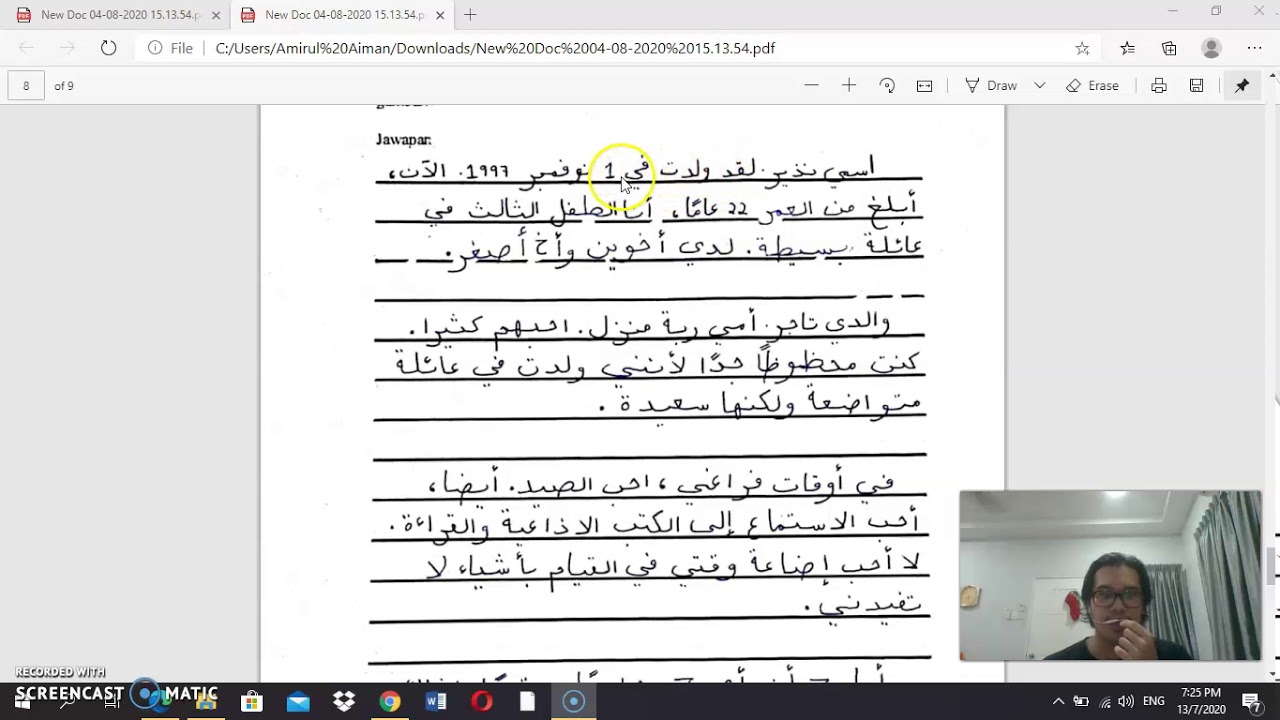 New Doc 04-08-2020 15.13.54.p
New Doc 04-08-2020 15.13.54.p
File
C:/Users/Amirul%20Aiman/Downloads/New%20Doc%2004-08-2020%2015.13.54.pdf
8 of 9
Draw
Erase
Jawapan:
اسمي نذير. لقد ولدت في 1 نوفمبر 1997. الآن،
أبلغ من العمر 22 عامًا، أنا الطفل الثالث في
عائلة بسيطة. لدي أخوين وأخ أصغر.
والدي تاجر. أمي ربة منزل. احبهم كثيرا.
كنت محظوظاً جدًا لأنني ولدت في عائلة
متواضعة ولكنها سعيدة.
في أوقات فراغي، احب الصيد. أيضا،
أحب الاستماع إلى الكتب الاذاعية والقراءة.
لا أحب إضاعة وقتي في القيام بأشياء لا
تفيدني.
RECORDED WITH
SCREENCAST MATIC
ENG
7:25 PM
13/7/2020
7